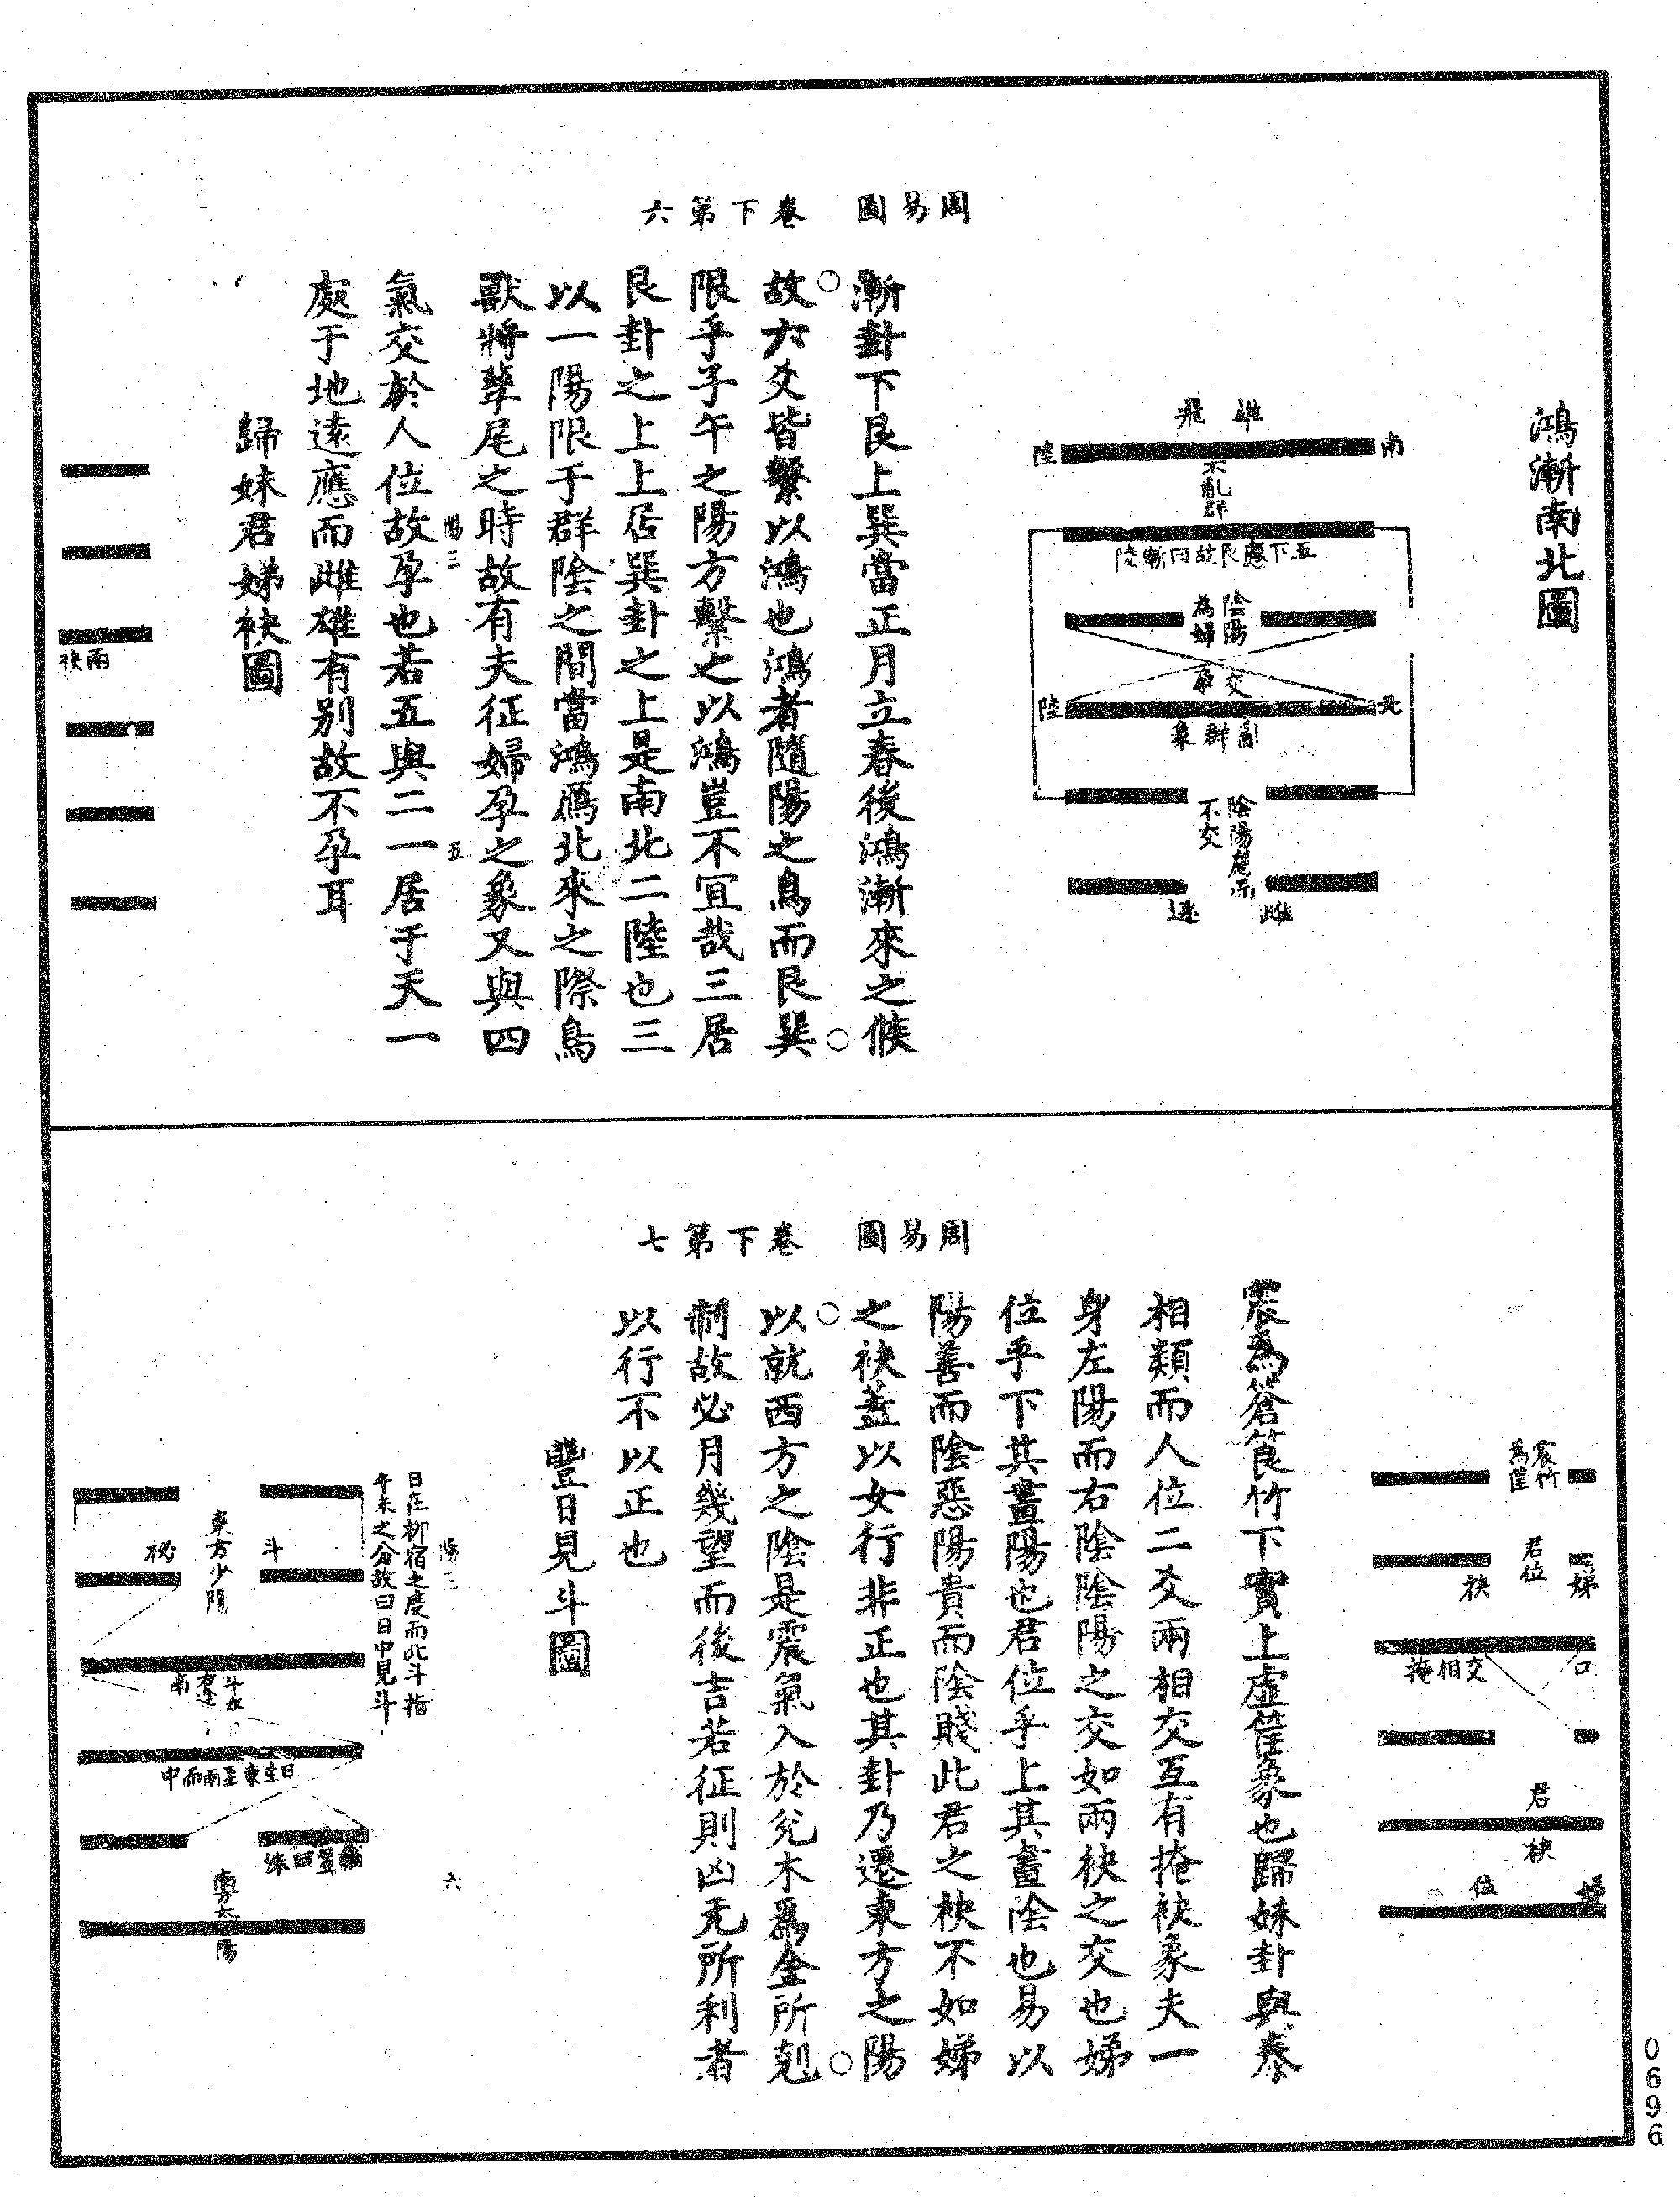 周易圖 卷下第六
鴻漸南北圖
雄飛
南
陸
不亂群
五下應艮故同漸陸
陰陽
為婦
交
孕
北
陸
離群象
陰陽應而
不交
雌
漸卦下艮上巽當正月立春後鴻漸來之候
故六爻皆繫以鴻也鴻者隨陽之鳥而艮巽
限乎子午之陽方繫之以鴻豈不宜哉三居
艮卦之上上居巽卦之上是南北二陸也三
以一陽限于群陰之間當鴻鴈北來之際鳥
獸將孳尾之時故有夫征婦孕之象又與四
陽三
五
氣交於人位故孕也若五與二一居于天一
處于地遠應而雌雄有別故不孕耳
歸妹君娣袂圖
兩袂
周易圖 卷下第七
震竹
為筐
君位
娣
袂
交相掩
君
袂
位
震為簹筤竹下實上虛筐象也歸妹卦與泰
相類而人位二爻兩相交互有掩袂象夫一
身左陽而右陰陰陽之交如兩袂之交也娣
位乎下其畫陽也君位乎上其畫陰也易以
陽善而陰惡陽貴而陰賤此君之袂不如娣
之袂蓋以女行非正也其卦乃遷東方之陽
以就西方之陰是震氣入於兌木為金所剋
制故必月幾望而後吉若征則凶无所利者
以行不以正也
豐日見斗圖
陽三
六
日在柳宿之度而北斗指
午未之分故曰日中見斗
斗
東方少陽
日生東至兩而中
南方太陽
0696